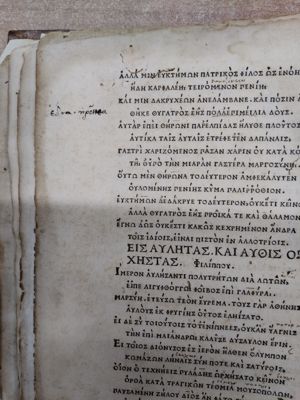 ΑΛΛΑ ΜΙΝ ΕΥΚΤΗΜΩΝ ΠΑΤΡΙΚΟΣ ΦΙΛΟΣ ΩΣ ΕΝΟΗ
ΗΔΗ ΚΑΡΦΑΛΕΗ ΤΕΙΡΟΜΕΝΟΝ ΠΕΝΙΗ
ΚΑΙ ΜΙΝ ΔΑΚΡΥΧΕΩΝ ΑΝΕΛΑΜΒΑΝΕ. ΚΑΙ ΠΟΣΙΝ
ΘΗΚΕ ΘΥΓΑΤΡΟΣ ΕΗΣ ΔΟΥΣ.
ΑΥΤΑΡ ΕΠΕΙ ΘΗΡΩΝΙ ΠΑΡΕΛΠΙΔΑΣ ΗΛΥΘΕ ΠΛΟΥΤΟΣ
ΑΥΤΙΚΑ ΤΑΙΣ ΑΥΤΑΙΣ ΕΤΡΕΦΕΤ ΕΝ ΔΑΠΑΝΑΙΣ,
ΓΑΣΤΡΙ ΧΑΡΙΖΟΜΕΝΟΣ ΠΑΣΑΝ ΧΑΡΙΝ ΟΥ ΚΑΤΑ ΚΟ
ΤΗ ΘΥΠΟ ΤΗΝ ΜΙΑΡΑΝ ΓΑΣΤΕΡΑ ΜΑΡΓΟΣΥΝΗ.
ΟΥΤΩ ΜΙΝ ΘΗΡΩΝΑ ΤΟΔΕΥΤΕΡΟΝ ΑΜΦΕΚΑΛΥΠΤΕΝ
ΟΥΛΟΜΕΝΗΣ ΠΕΝΙΗΣ ΚΥΜΑ ΠΑΛΙΡΡΟΘΙΟΝ.
ΕΥΚΤΗΜΩΝ ΔΕΔΑΚΡΥΕ ΤΟΔΕΥΤΕΡΟΝ, ΟΥΚΕΤΙ ΚΕΙΝΟ
ΑΛΛΑ ΘΥΓΑΤΡΟΣ ΕΗΣ ΠΡΟΙΚΑ ΤΕ ΚΑΙ ΘΑΛΑΜΟΝ
ΕΓΝΩ ΔΩΣ ΟΥΚΕΣΤΙ ΚΑΚΩΣ ΚΕΧΡΗΜΕΝΟΝ ΑΝΔΡΑ
ΤΟΙΣ ΙΔΙΟΙΣ, ΕΙΝΑΙ ΠΙΣΤΟΝ ΕΝ ΑΛΛΟΤΡΙΟΙΣ.
ΕΙΣ ΑΥΛΗΤΑΣ. ΚΑΙ ΑΥΘΙΣ ΟΣ
ΧΗΣΤΑΣ. Φιλίππου.
ΙΜΕΡΟΝ ΑΥΛΗΣΑΝΤΙ ΠΟΛΥΤΡΗΤΩΝ ΔΙΑ ΛΩΤΩΝ,
ΕΙΠΕ ΛΙΓΥΦΘΟΓΓΩ ΦΟΙΒΟΣ ΕΠΙ ΓΛΑΦΥΡΑ.
ΜΑΡΣΥΗ, ΕΨΕΥΣΩ ΤΕΟΝ ΕΥΡΕΜΑ. ΤΟΥΣ ΓΑΡ ΑΘΗΝΗΣ
ΑΥΛΟΥΣ ΕΚ ΦΡΥΓΙΗΣ ΟΥΤΟΣ ΕΛΗΙΣΑΤΟ.
ΕΙ ΔΕ ΣΥ ΤΟΙΟΥΤΟΙΣ ΤΟΤ ΕΝΕΠΝΕΕΣ, ΟΥΚΑΝ ΥΑΓΝΙΣ
ΤΗΝ ΕΠΙ ΜΑΙΑΝΔΡΩ ΚΛΑΥΣΕ ΔΥΣΑΥΛΟΝ ΕΡΙΝ.
ΕΙ ΤΟΙΟΣ ΔΙΟΝΥΣΟΣ ΕΣ ΙΕΡΟΝ ΗΛΘΕΝ ΟΛΥΜΠΟΝ
ΚΩΜΑΖΩΝ ΛΗΝΑΙΣ ΣΥΝ ΠΟΤΕ ΚΑΙ ΣΑΤΥΡΟΙΣ,
ΟΙΟΝ Ο ΤΕΧΝΗΕΙΣ ΠΥΛΑΔΗΣ ΩΡΧΗΣΑΤΟ ΚΕΙΝΟΝ
ΟΡΘΑ ΚΑΤΑ ΤΡΑΓΙΚΩΝ ΤΕΘΜΙΑ ΜΟΥΣΟΠΟΛΩΝ,
ΠΑΥΣΑΜΕΝΗ ΖΗΛΟΥ ΔΙΟΣ ΑΝ